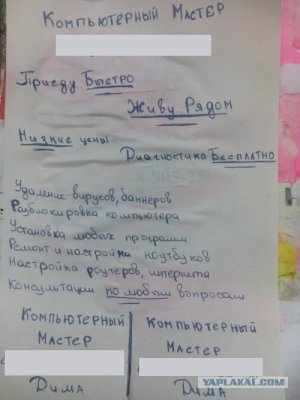 Компьютерный Мастер
Приеду Быстро
Живу Рядом
Низкие цены
Диагностика Бесплатно
Удаление вирусов, баннеров
Разблокировка компьютера
Установка любых программ
Ремонт и настройка ноутбуков
Настройка роутеров, интернета
Консультации по любым вопросам
Компьютерный
Мастер
Дима
Компьютерный
Мастер
Дима
YAPLAKAL.COM